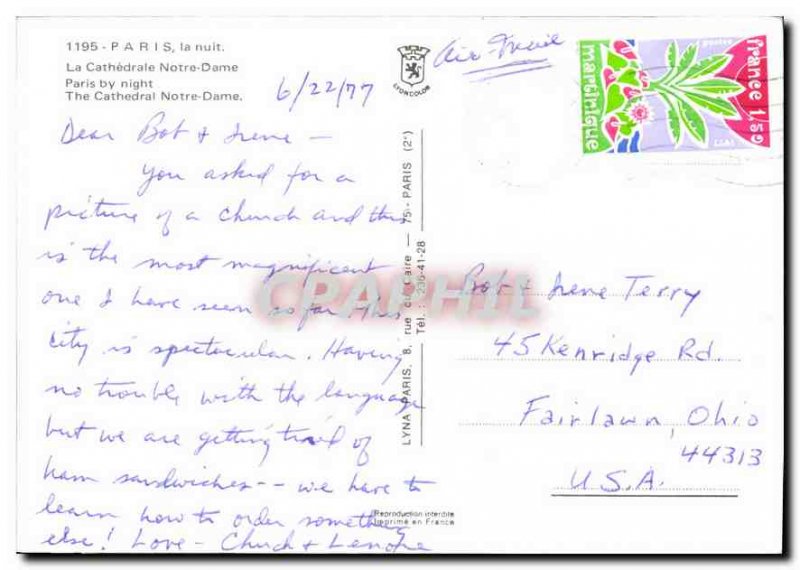 1195 - PARIS, la nuit.
La Cathédrale Notre-Dame
Paris by night
The Cathedral Notre-Dame.
LYONCOLOR
Air Mail
postes
france 1,50
martinique
6/22/77
Dear Bob & Irene —
You asked for a
picture of a church and this
is the most magnificent
one I have seen so far. This
city is spectacular. Having
no trouble with the language
but we are getting tired of
ham sandwiches -- we have to
learn how to order something
else! Love - Chuck & Lenore
LYNA-PARIS, 8, rue du Caire — 75 - PARIS (2e)
Tél. : 236-41-28
CPAPHIL
Bob & Irene Terry
45 Kenridge Rd.
Fairlawn, Ohio
44313
U.S.A.
Reproduction interdite
Imprimé en France